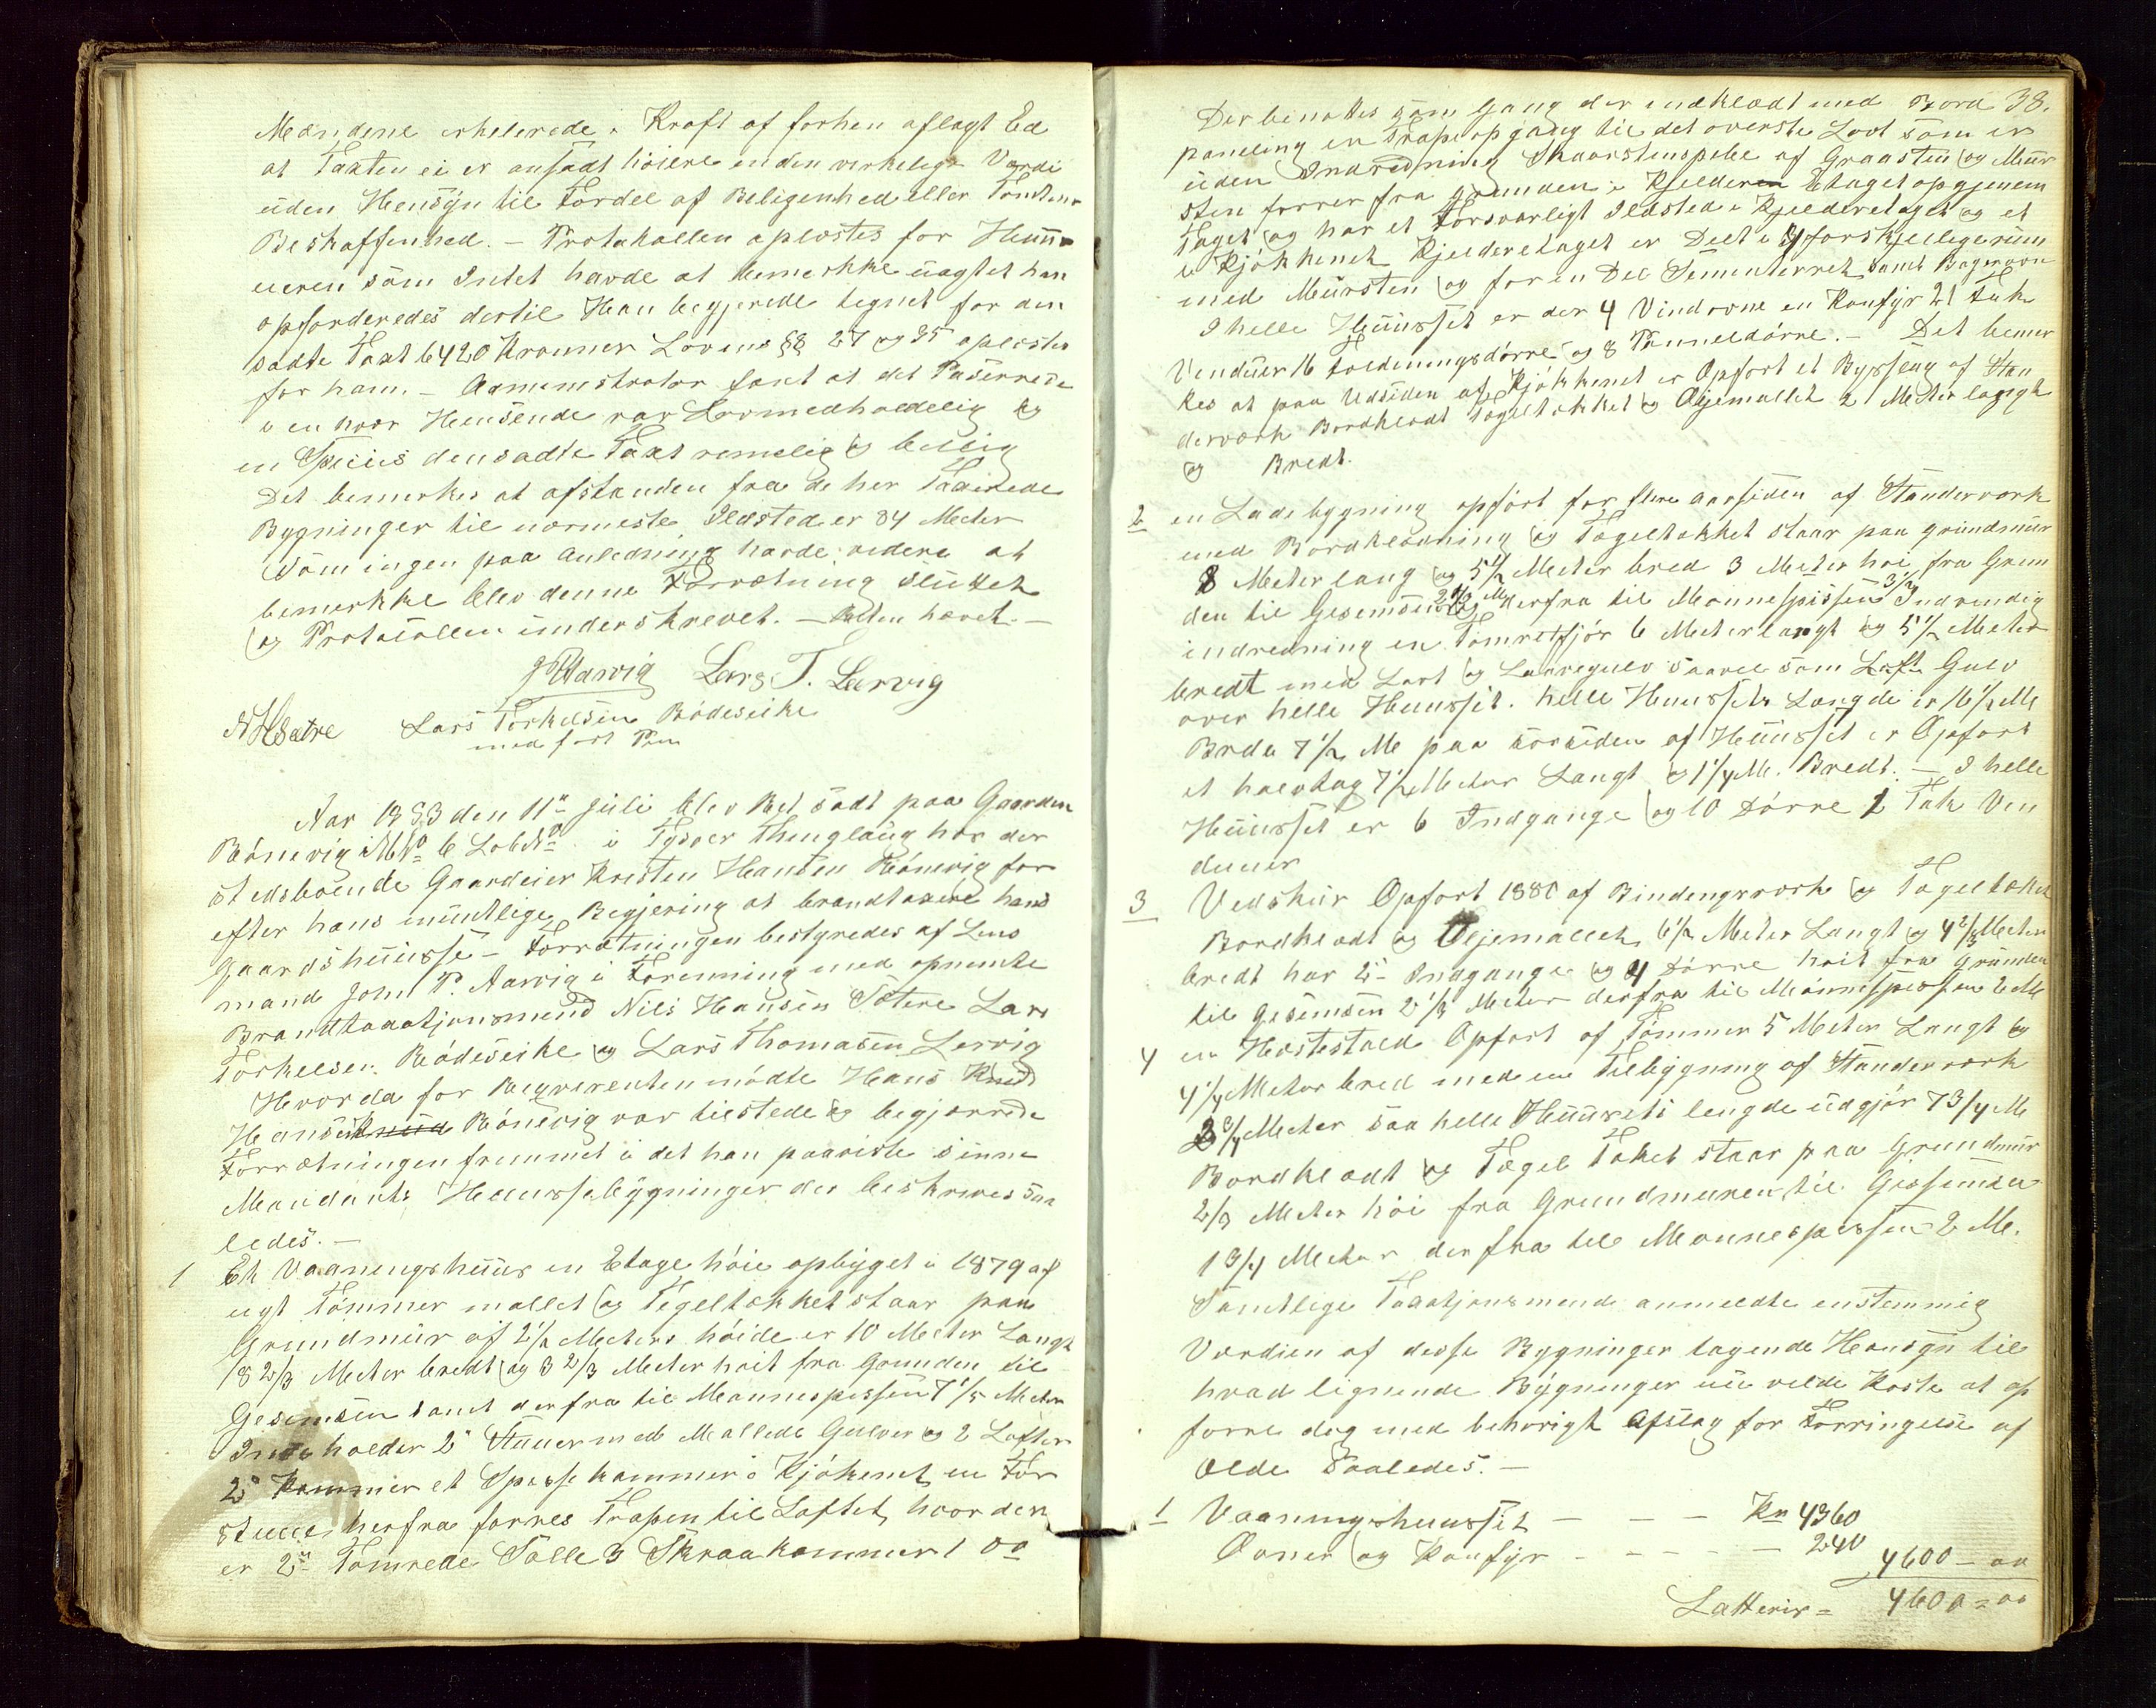 Mændene erkelerede i Kraft af forhen aflagt Ed
at Taxten ei er ansadt höiere enden verkelige Værdi
uden Hensÿn til Fordel af Beligenhed eller Tomtens
Beskaffenhed. — Protokollen oplæstes for Huus
eieren som Intet havde at bemerkke uagtet han
opforderedes dertil Han begjerede tegnet for den
sadte Taxt 6420 Kronner Lovens §§ 27 og 35 oplæstes
for ham. — Admenistrator fant at det Paserrede
i en hvor Hensende var Lovmedholdelig og
in Speciis den sadte Taxt remelig og bellig
Det bemerkes at afstanden fra de her Taxerede
Bygninger til nærmeste Ildsted er 84 Meeter
Som ingen paa Anledning havde videre at
bemerkke blev denne Forrætning sluttet
og Protocollen underskrevet. — Retten hævet. —
Lars T. Lervig
N H Sætre Lars Torkelsen Bödeseike
med fört Pen
Aar 1883 den 11te Juli blev Ret sadt paa Gaarden
Rönevig MNo 6 LobNo i Tysvær Thinglaug hos der
stedsboende Gaardeier Kristen Hansen Rönevig for
efter hans mundtlige Begjering at brandtaxere hans
Gaardshuusse — Forrætningen bestyredes af Lens
mand John P. Aarvig i Forenning med opnevnte
Brandtaxatjonsmend Nils Hansen Sætre Lars
Torkelsen Bödeseike og Lars Thomasen Lervig
Hvorda for Reqvirenten mödte Hans Knud
Hansen Rönevig var tilstede og begjærrede
Forrætningen fremmet i det han paaviste sinne
Mandants Huussebygninger der beskrives saa
ledes. —
1 Et Vaaningshuus en Etage höie opbÿget i 1879 af
nyt Tömmer mallet og Tegeltækket staar paa
Grundmuur af 2½ Meeters höide er 10 Meeter Langt
8 2/3 Meeter bredt og 3 2/3 Meeter höit fra Grunden til
Gesemsen samt derfra til Mönnespissen 7 1/5 Meeter
Indeholder 2 Stuuer med Mallede Gulver og 2 Lofter
2 Kammer et Spissekammer Kjökenet en For
stuue herfra förres Trapen til Loftet hvor der
er 2 Tomrede Salle 3 Skraakammer 1 do
Der benøttes som Gang der indklædt med Bord 38.
paneling en Trapeopgang til det overste Lovt som er
uden Indredning Skaarstenspibe af Graasten og Muur
sten forrer fra Grunden i Kjelderen Etaget opgjenem
Taget og har et Forsvarligt Ildsted i Kjelderetaget og et
i Kjøkkenet Kjelderetaget er Delt i 4 forskjellige rum
med Mursten og for en Del Sementerret samt Bagerovn
I helle Huusset er der 4 Vindovne en Komfÿr 21 Fak
Venduer 16 Foldningsdörre og 8 Panneldörre. — Det bemer
kes at paa Udsiden af Kjökkenet er Opfört et Bÿsslag af Stan
derværk Bordklædt Tægeltækket og Oljemallet 2 Meter langt
og Bredt.
2 en Ladebygning opfört for flere aarsiden af Standerværk
med Bordklædning og Tægeltækket staar paa grundmuur
8 Meter lang og 5½ Meeter bred 3 Meeter höi fra Grun
den til Gesemsen og derfra til Mönnespissen 3½ Indvendig
indredning en Tomretfjös 6 Meeter langt og 5½ Meeter
bredt med Lovt og Laavegulv saavel som Loft Gulv
over helle Huusset. helle Huussets Længde er 16½ Me
Brede 7½ Me paa sorsiden af Huusset er Opfört
et halvtag 7½ Meeter Langt og 1¼ Me. Bredt. — I helle
Huusset er 6 Indgange og 10 Dörre 1 Fak Ven
duuer
3 Vedskur Opfört 1880 af Bindengsværk og Tægeltækket
Bordklædt og Oljemallet 6½ Meter Langt og 4 2/3 Meeter
bredt har 2 Indgange og 4 Dörre höit fra Grunden
til Gesemsen 2 1/3 Meeter derfra til Mönnespissen 2 Me
4 en Hestestald Opfört af Tömmer 5 Meter Langt og
4¼ Meeter bred med en Tilbÿgning af Standerværk
2 3/4 Meeter saa helle Huusets lengde udgjör 7 3/4 Me
Bordklædt og Tægel Tæket staar paa Grundmuur
2/3 Meeter höi fra Grundmuren til Gissemsen
1 3/4 Meeter derfra til Mönnespissen 2 Me.
Samtlige Taxatjonsmend anmeldte enstemmig
Værdien af desse Bygninger tagende Hensÿn til
hvad lignende Bÿgninger nu velde Koste at op
förre dog med behørigt Afslag for Forringelse af
Elde Saaledes. —
1 Vaaningshuusset — — — Kr 4360
Ovner og Komfÿr — — — — 240
4600 — 00
Latterir = 4600 = 00